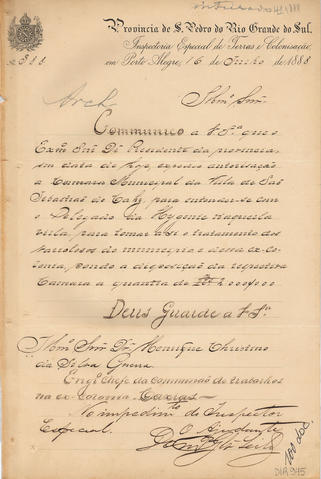 Provincia de S. Pedro do Rio Grande do Sul.
Inspectoria Especial de Terras e Colonisação,
em Porto Alegre, 16 de Junho de 1888
Arch
Illmo. Snr.
Communico a V. Sa. que o
Exmo Snr Dr Presidente da provincia,
em data de hoje, expedio autorisação
a Camara Municipal da Villa de São
Sebastião do Cahy, para entender-se com
o Delegado da Hygiene naquella
villa, para tomar a si o tratamento dos
variolosos do municipio e dessa ex-co-
lonia, pondo a disposição da respectiva
Camara a quantia de
Deus Guarde a V. Sa.
Illmo. Snr. Dr. Henrique Christino
da Silva
Engo. Chefe da Commissão de trabalhos
na ex-Colonia Caxias
No impedimto do Inspector
Especial.
O Ajudante
100 doc.
DIR 945